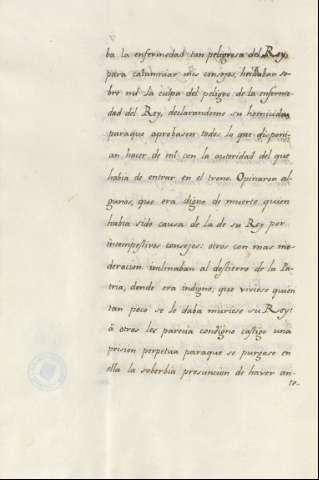 ba la enfermedad tan peligrosa del Rey,
para calumniar mis consejos, hechaban so-
bre mi la culpa del peligro de la enferme-
dad del Rey, declarandome su homicida,
paraque aprobasen todos lo que disponi-
an hacer de mi con la autoridad del que
havia de entrar en el trono. Opinaron al-
gunos, que era digno de muerte quien
havia sido causa de la de su Rey por
intempestivos consejos: otros con mas mo-
deracion inclinaban al destierro de la Pa-
tria, donde era indigno, que viviese quien
tan poco se le daba muriese su Rey:
à otros les parecia condigno castigo una
prision perpetua paraque se purgase en
ella la soberbia presuncion de haver an-
te-